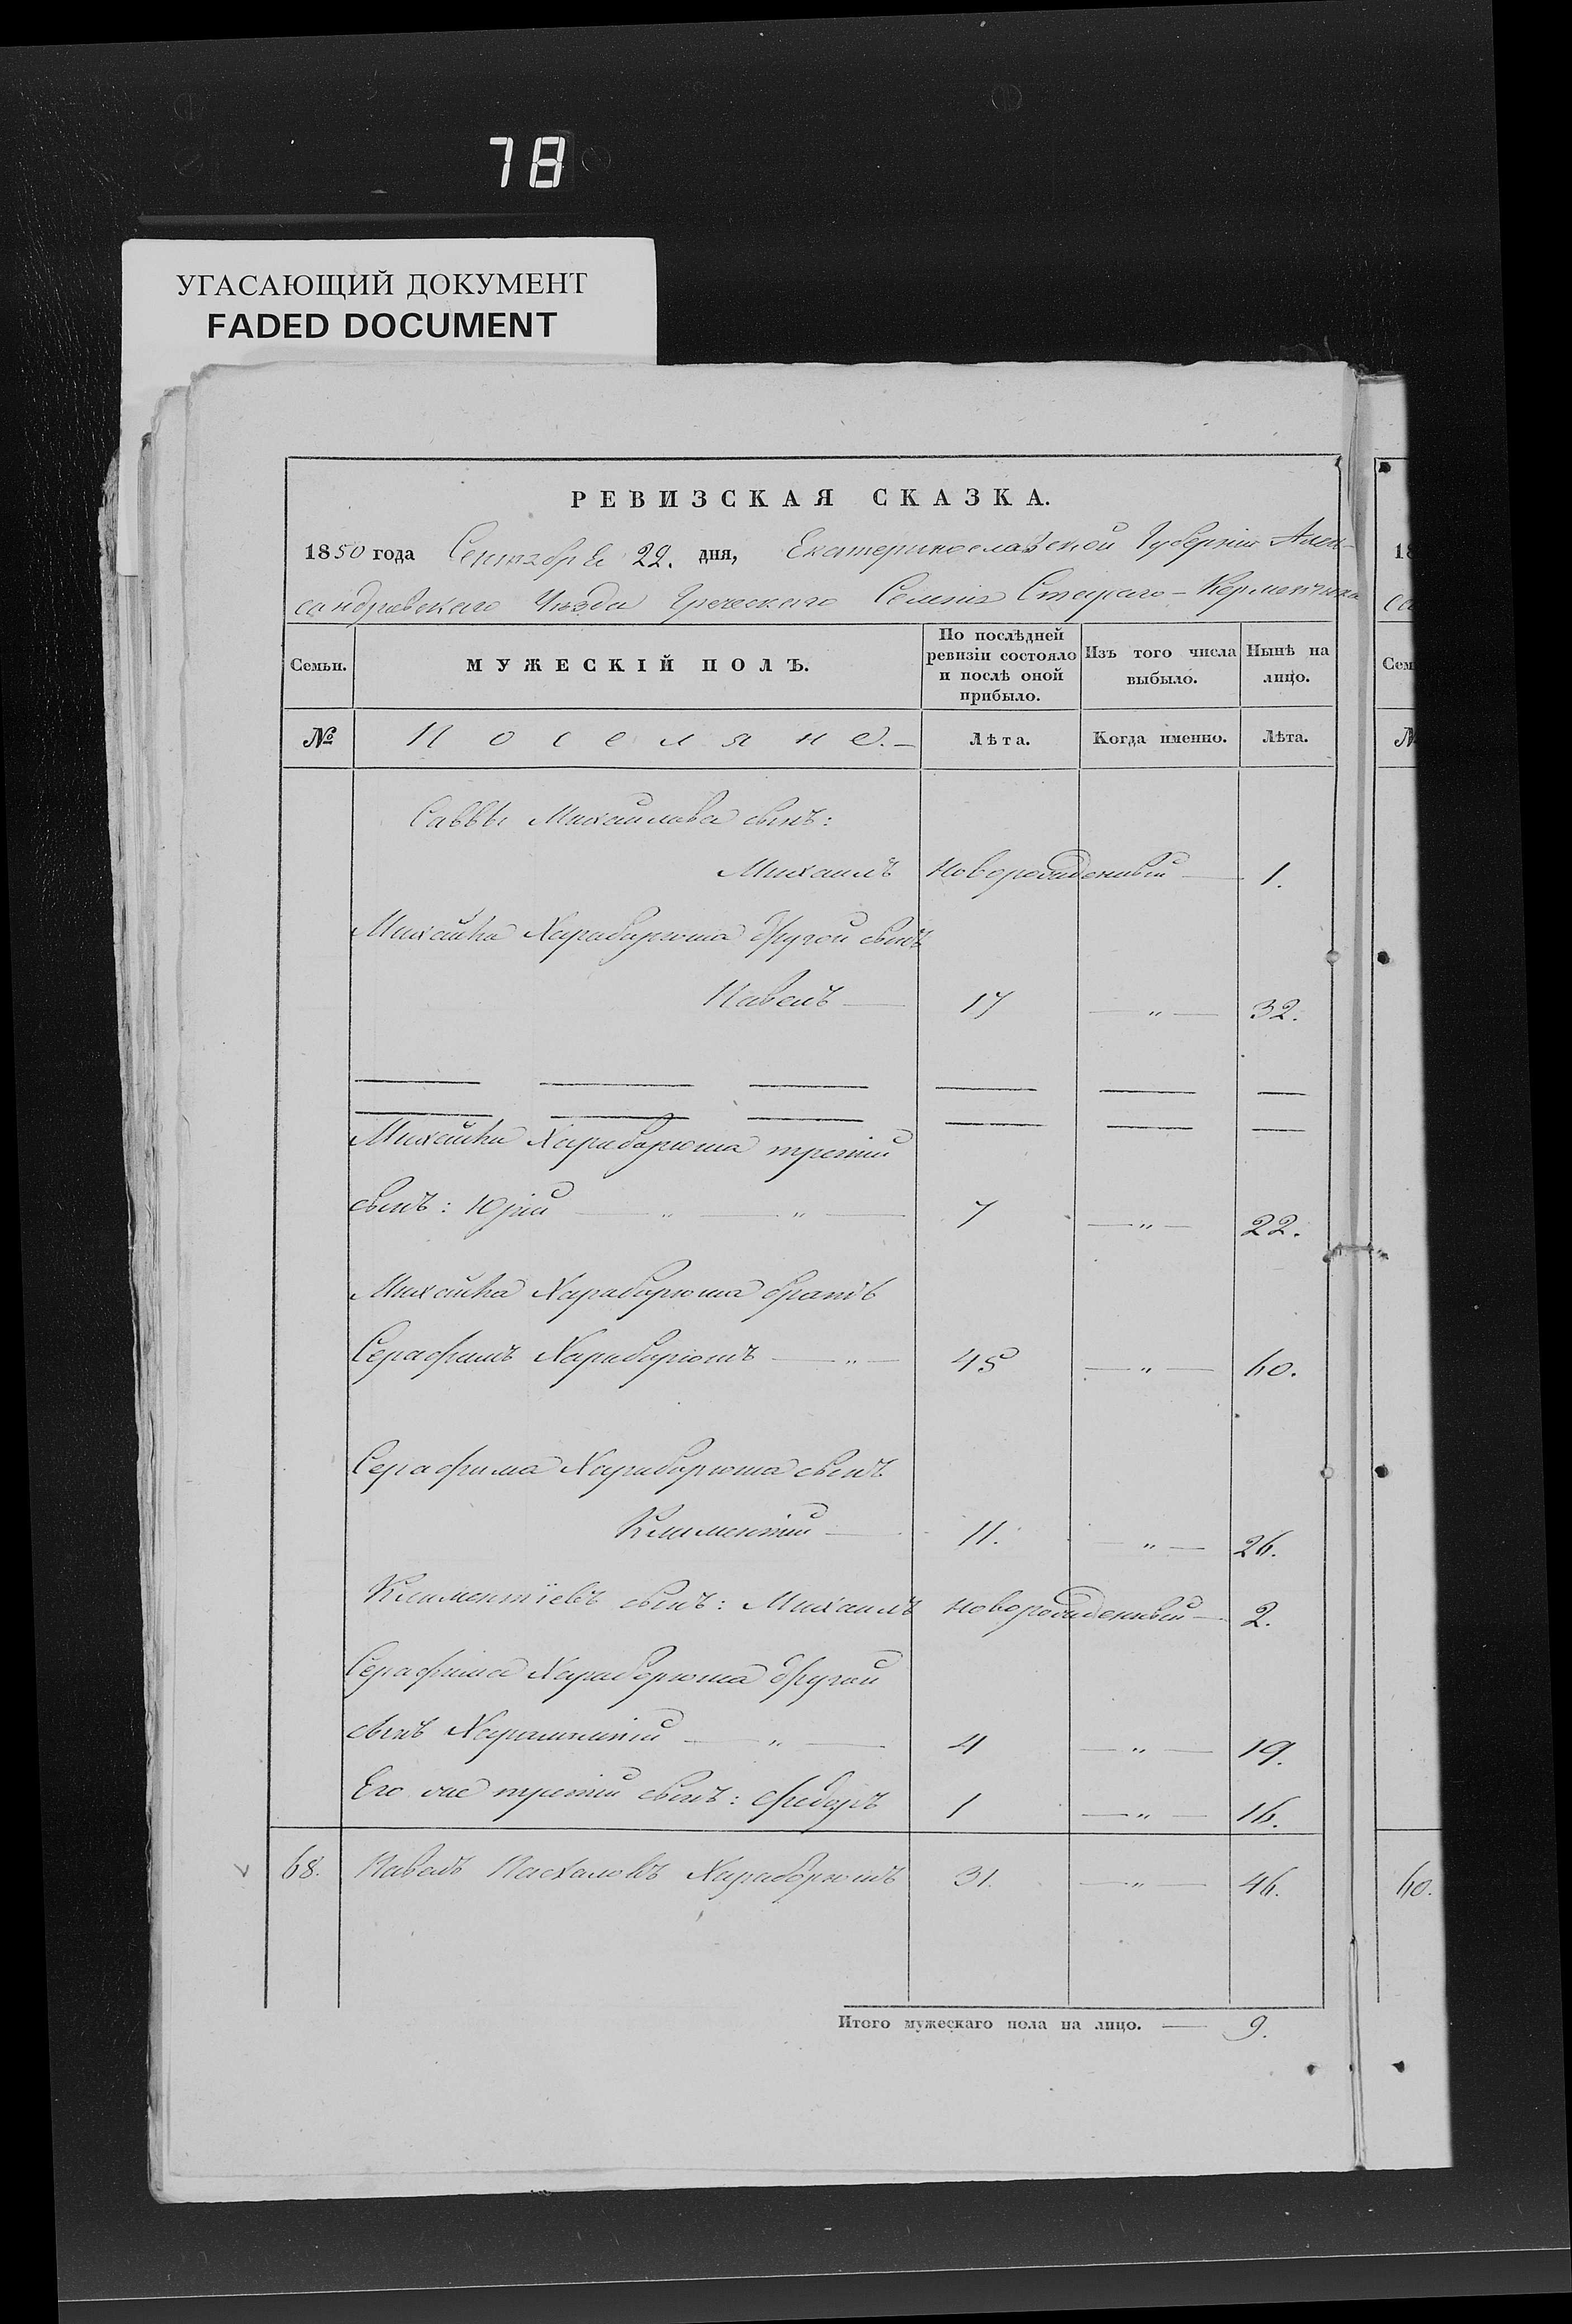 78
УГАСАЮЩИЙ ДОКУМЕНТ
FADED DOCUMENT
РЕВИЗСКАЯ СКАЗКА.
1850 года Сентября 22. дня, Екатеринославской Губернiи Алек-
сандровскаго Уѣзда Греческаго Селенiя Стараго-Керменчика
Семьи.
МУЖЕСКIЙ ПОЛЪ.
По послѣдней ревизiи состояло и послѣ оной прибыло.
Изъ того числа выбыло.
Нынѣ на лицо.
№ Поселяне.- Лѣта. Когда именно. Лѣта.
Саввы Михайлова сынъ:
Михаилъ новорожденный — 1.
Михайла Харабарюша другой сынъ
Павелъ — 17 — „ — 32.
Михайла Харабарюша третiй
сынъ: Юрiй — „ — „ — 7 — „ — 22.
Михайла Харабарюша братъ
Серафимъ Харабарюшъ — „ — 45 — „ — 60.
Серафима Харабарюша сынъ
Климентiй — 11. — „ — 26.
Климентiевъ сынъ: Михаилъ новорожденный — 2.
Серафима Харабарюша другой
сынъ Харлампiй — „ — 4 — „ — 19.
Его же третiй сынъ: Федоръ 1 — „ — 16.
68. Павелъ Пасхаловъ Харабарюшъ 31. — „ — 46.
Итого мужескаго пола на лицо. — 9.
18
Сем
№
60.